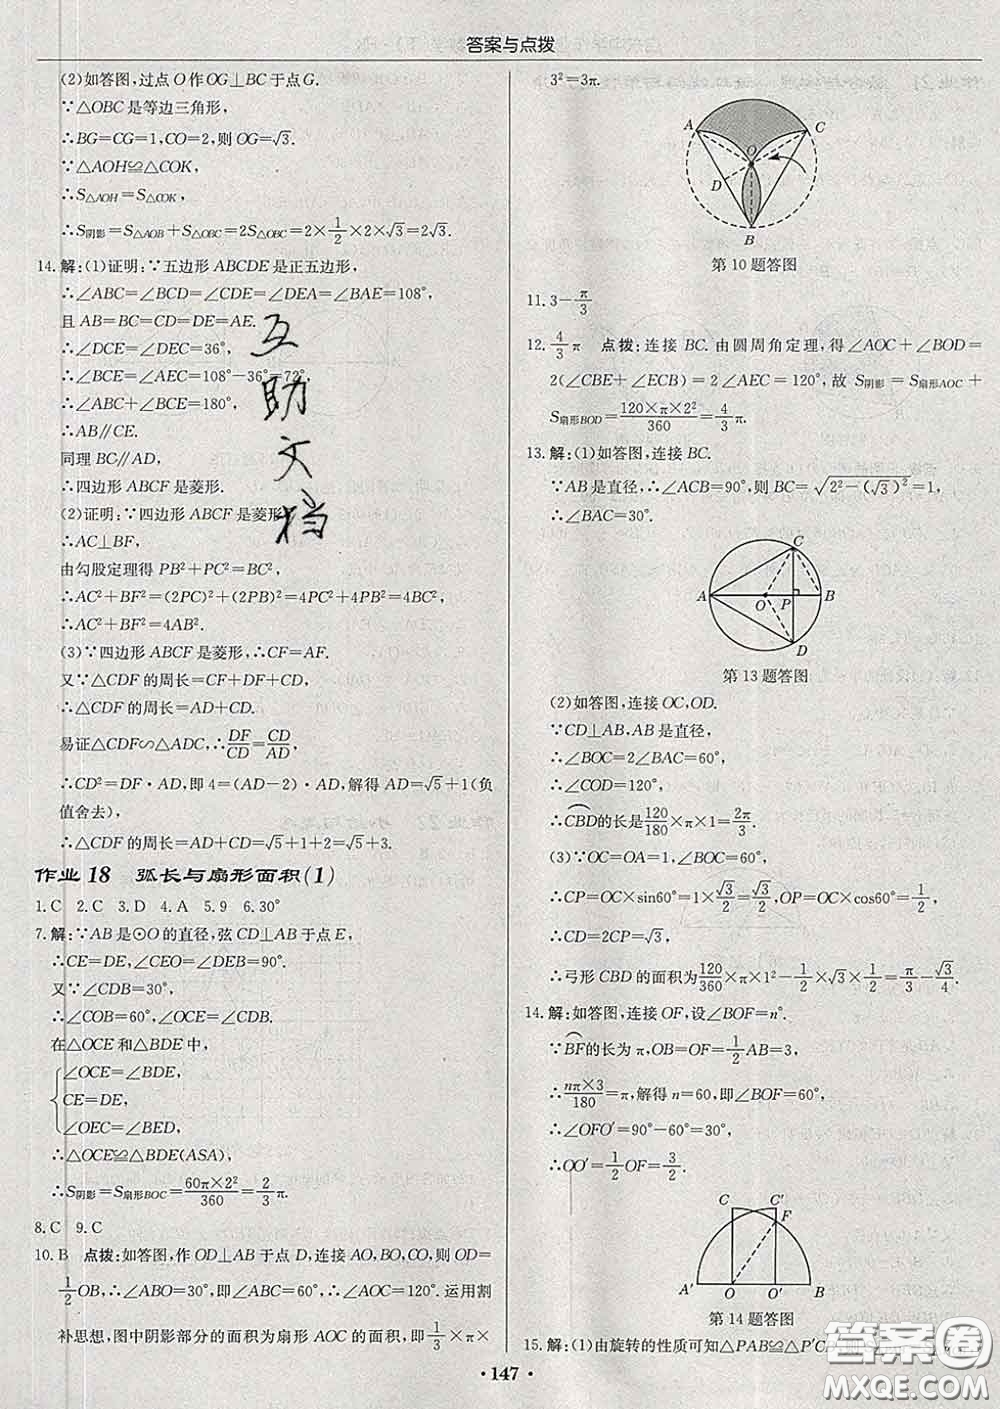 答案与点拨
(2)如答图,过点O作OG⊥BC于点G.
∵△OBC是等边三角形,
∴BG=CG=1,CO=2,则OG=√3.
∵△AOH≌△COK,
∴S△AOH=S△COK,
∴S阴影=S△AOB+S△OBC=2S△OBC=2×1/2×2×√3=2√3.
14.解:(1)证明:∵五边形ABCDE是正五边形,
∴∠ABC=∠BCD=∠CDE=∠DEA=∠BAE=108°,
且AB=BC=CD=DE=AE.
∴∠DCE=∠DEC=36°,
∴∠BCE=∠AEC=108°-36°=72°,
∴∠ABC+∠BCE=180°,
∴AB∥CE.
同理BC∥AD,
∴四边形ABCF是菱形.
(2)证明:∵四边形ABCF是菱形,
∴AC⊥BF,
由勾股定理得PB²+PC²=BC²,
∴AC²+BF²=(2PC)²+(2PB)²=4PC²+4PB²=4BC²,
∴AC²+BF²=4AB².
(3)∵四边形ABCF是菱形,∴CF=AF.
又∵△CDF的周长=CF+DF+CD,
∴△CDF的周长=AD+CD.
易证△CDF∽△ADC,∴DF/CD=CD/AD,
∴CD²=DF·AD,即4=(AD-2)·AD,解得AD=√5+1(负
值舍去),
∴△CDF的周长=AD+CD=√5+1+2=√5+3.
作业18 弧长与扇形面积(1)
1.C 2.C 3.D 4.A 5.9 6.30°
7.解:∵AB是⊙O的直径,弦CD⊥AB于点E,
∴CE=DE,∠CEO=∠DEB=90°.
又∵∠CDB=30°,
∴∠COB=60°,∠OCE=∠CDB.
在△OCE和△BDE中,
∠OCE=∠BDE,
CE=DE,
∠OEC=∠BED,
∴△OCE≌△BDE(ASA),
∴S阴影=S扇形BOC=60π×2²/360=2/3π.
8.C 9.C
10.B 点拨:如答图,作OD⊥AB于点D,连接AO,BO,CO,则OD=
1/2OB,∴∠ABO=30°,即∠ABC=60°,∴∠AOC=120°.运用割
补思想,图中阴影部分的面积为扇形AOC的面积,即1/3×π×
3²=3π.
A C
O
D
B
第10题答图
11.3-π/3
12.4/3π 点拨:连接BC.由圆周角定理,得∠AOC+∠BOD=
2(∠CBE+∠ECB)=2∠AEC=120°,故S阴影=S扇形AOC+
S扇形BOD=120×π×2²/360=4/3π.
13.解:(1)如答图,连接BC.
∵AB是直径,∴∠ACB=90°,则BC=√(2²-(√3)²)=1,
∴∠BAC=30°.
C
A O P B
D
第13题答图
(2)如答图,连接OC,OD.
∵CD⊥AB,AB是直径,
∴∠BOC=2∠BAC=60°,
∴∠COD=120°,
∴⌒CBD的长是120/180×π×1=2π/3.
(3)∵OC=OA=1,∠BOC=60°,
∴CP=OC×sin60°=1×√3/2=√3/2,OP=OC×cos60°=1/2,
∴CD=2CP=√3,
∴弓形CBD的面积为120/360×π×1²-1/2×√3×1/2=π/3-√3/4.
14.解:如答图,连接OF,设∠BOF=n°.
∵⌒BF的长为π,OB=OF=1/2AB=3,
∴nπ×3/180=π,解得n=60,即∠BOF=60°,
∴∠OFO′=90°-60°=30°,
∴OO′=1/2OF=3/2.
C C′
F
A′ O B
第14题答图
15.解:(1)由旋转的性质可知△PAB≌△P′C
互
助
文
档
答案圈
MXQE.COM
·147·